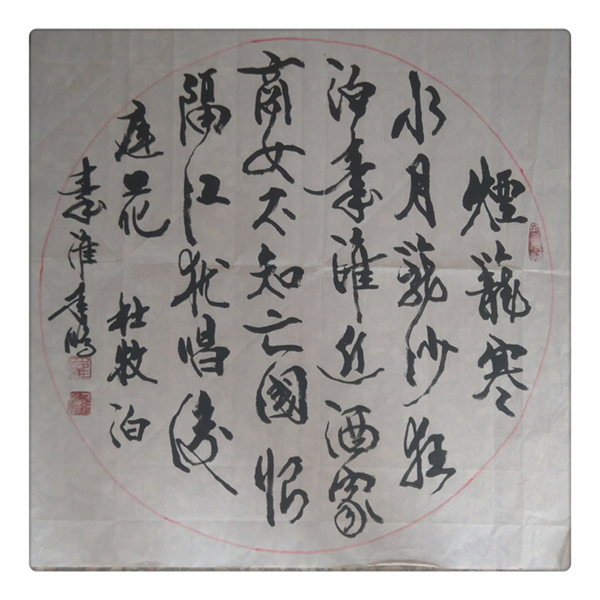 煙籠寒
水月籠沙夜
泊秦淮近酒家
商女不知亡國恨
隔江犹唱後
庭花 杜牧 泊
秦淮